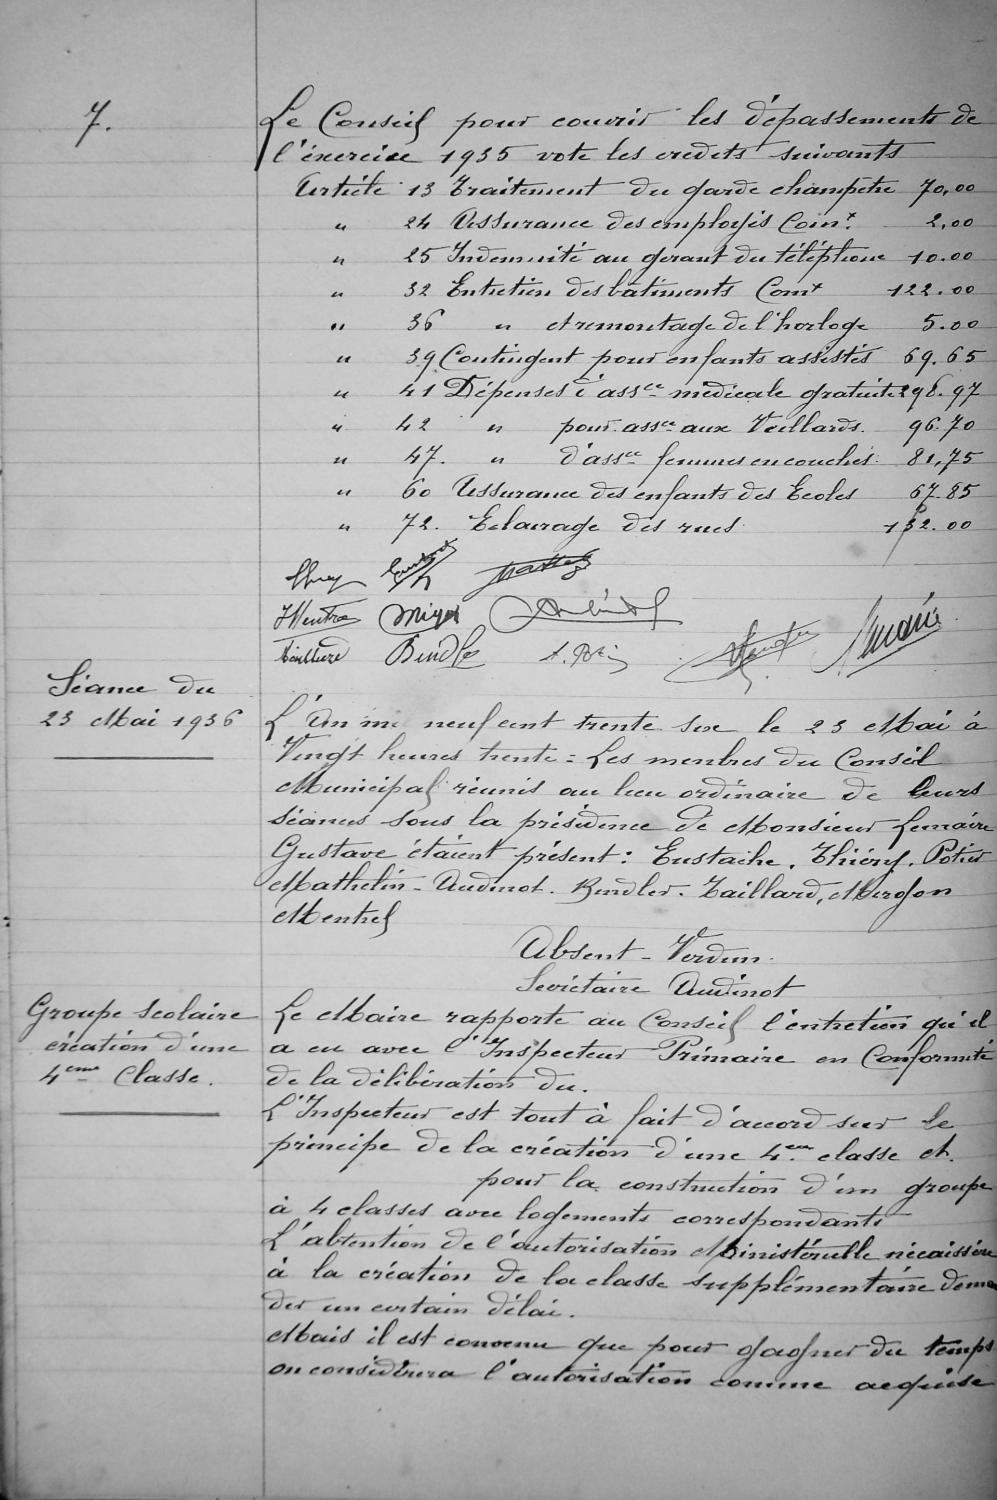 7.
Le Conseil pour couvrir les dépassements de
l'éxercice 1935 vote les credits suivants
Article 13 Traitement du garde champetre 70,00
" 24 Assurance des employés Comx 2,00
" 25 Indemnité au gerant du téléphone 10.00
" 32 Entretien des batiments Comx 122.00
" 36 " et remontage de l'horloge 5.00
" 39 Contingent pour enfants assistés 69.65
" 41 Dépenses d'assce médicale gratuite 298.97
" 42 " pour assce aux Veillards. 96.70
" 47. " d'assce femmes en couches. 81,75
" 60 Assurance des enfants des Ecoles 67.85
" 72. Eclairage des rues 132.00
Séance du
23 Mai 1936
L'An mil neuf cent trente six le 23 Mai à
Vingt heures trente = Les menbres du Conseil
Municipal réunis au lieu ordinaire de leurs
séances sous la présidence de Monsieur Lemaire
Gustave étaient présent : Eustache, Thiéry, Potier
Mathelin - Audinot. Bindler. Taillard, Mirgon
Mentrel
Absent - Verdun.
Secrétaire Audinot
Groupe scolaire
création d'une
4eme Classe.
Le Maire rapporte au Conseil l'entretien qu'il
a eu avec l'Inspecteur Primaire en Conformité
de la délibération du.
L'Inspecteur est tout à fait d'accord sur le
principe de la création d'une 4eme classe et.
pour la construction d'un groupe
à 4 classes avec logements correspondants
L'abtention de l'autorisation Ministérielle nécaissère
à la création de la classe supplémentaire deman
der un certain délai.
Mais il est convenu que pour gagner du temps
on considèrera l'autorisation comme acquise